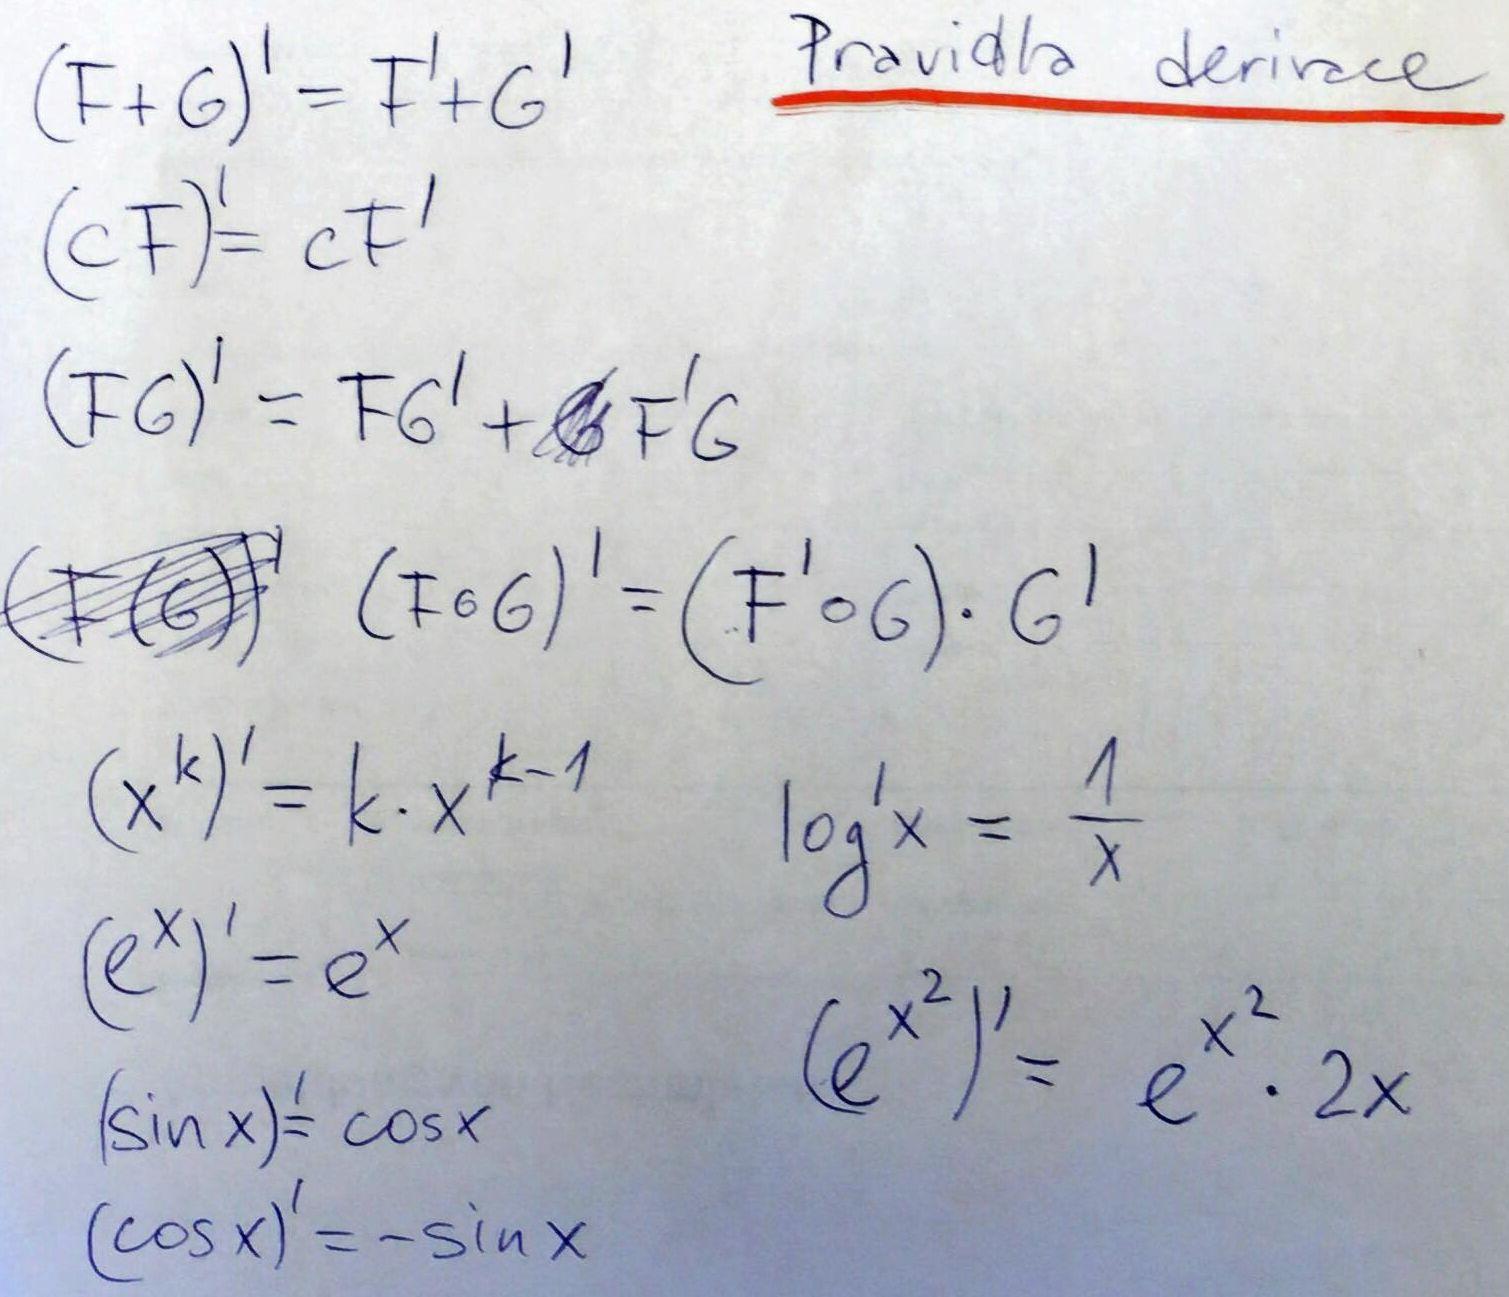 Pravidla derivace
(F+G)' = F'+G'
(cF)' = cF'
(FG)' = FG' + F'G
(F∘G)' = (F'∘G)·G'
(x^k)' = k·x^{k-1}
log'x = 1/x
(e^x)' = e^x
(e^{x^2})' = e^{x^2}·2x
(sin x)' = cos x
(cos x)' = -sin x